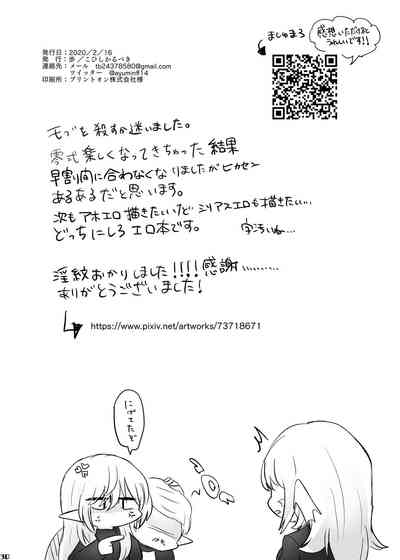 発行日：2020／2／16
発行：歩／こひしかるべき
連絡先：メール　tb24378580@gmail.com
ツイッター　@ayuminff14
印刷所：プリントオン株式会社様
ましゅまろ
感想いただけると
うれしいです!!
モブを殺すか迷いました。
零式楽しくなってきちゃった結果
早割間に合わなくなりましたがヒカセン
あるあるだと思います。
次もアホエロ描きたいけど シリアスエロも描きたい…
どっちにしろ エロ本です。
字汚いね…
淫紋おかりしました!!!!感謝…………
ありがとうございました!
https://www.pixiv.net/artworks/73718671
にげてたぞ